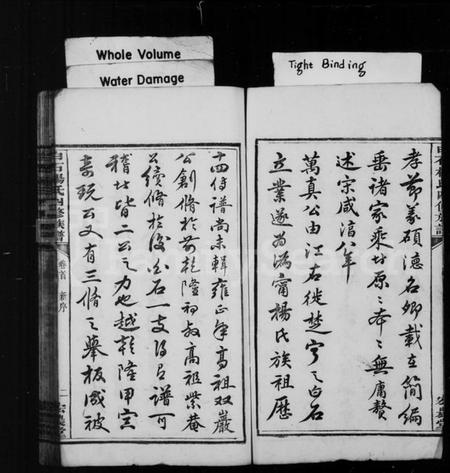 Whole Volume
Water Damage
Tight Binding
孝節義碩德名卿載在簡編
垂諸家乘者原原本本無庸贅
述宋咸淳八年
萬真公由江右徙楚寧之白石
立業遂為溈甯楊氏族祖歷
十四傳譜尚未輯雍正年高祖双巖
公創脩於前乾隆初叔高祖紫菴
公續脩於後白石一支得有譜可
稽者皆二公之力也越乾隆甲寅
公又有三脩之舉板成被
白石楊氏四修族譜
卷首
新序
二